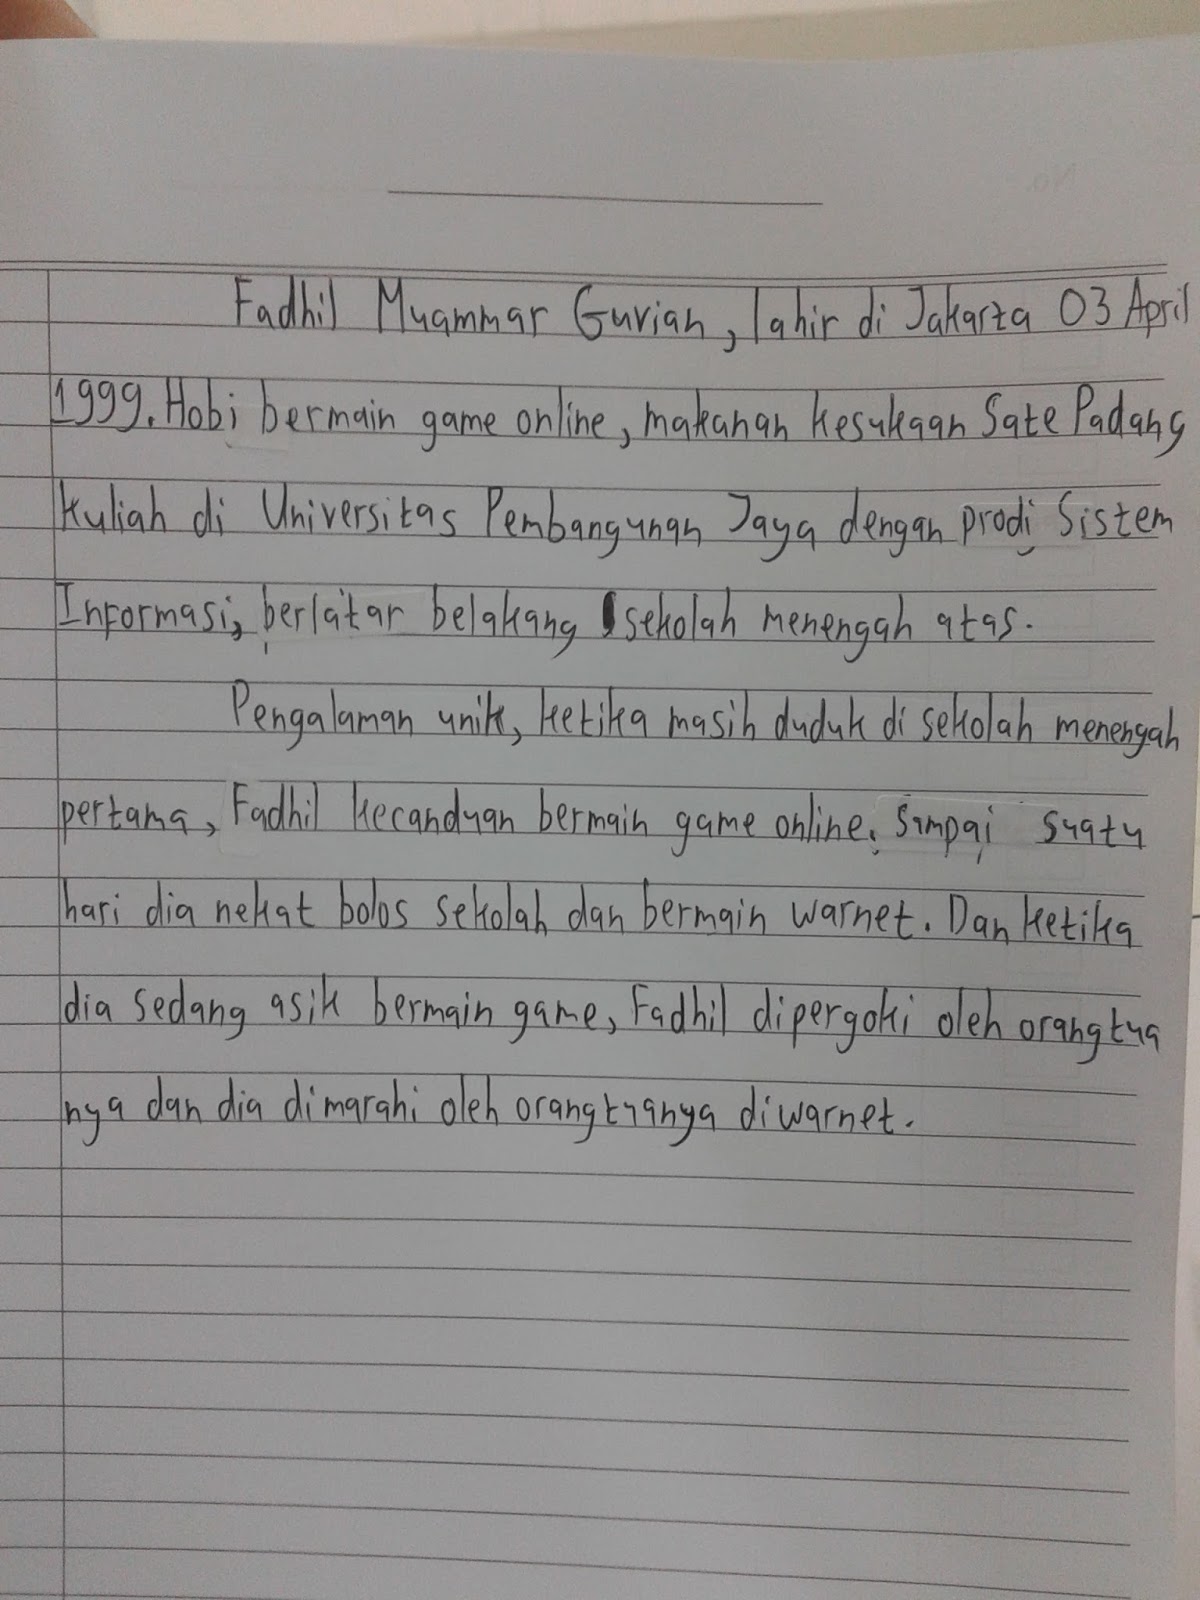 Fadhil Muammar Guvian, lahir di Jakarta 03 April
1999. Hobi bermain game online, makanan kesukaan Sate Padang
kuliah di Universitas Pembangunan Jaya dengan prodi Sistem
Informasi, berlatar belakang sekolah menengah atas.
Pengalaman unik, ketika masih duduk di sekolah menengah
pertama, Fadhil kecanduan bermain game online. Sampai suatu
hari dia nekat bolos sekolah dan bermain warnet. Dan ketika
dia sedang asik bermain game, Fadhil dipergoki oleh orangtua
nya dan dia dimarahi oleh orangtuanya diwarnet.